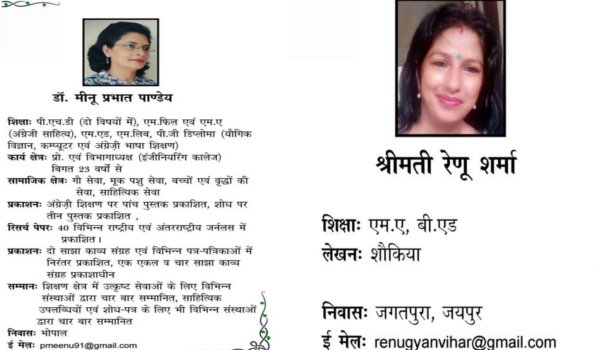 डॉ. मीनू प्रभात पाण्डेय
शिक्षाः पी.एच.डी (दो विषयों में), एम.फिल एवं एम.ए
(अंग्रेजी साहित्य), एम.एड, एम.लिब, पी.जी डिप्लोमा (यौगिक
विज्ञान, कम्प्यूटर एवं अंग्रेज़ी भाषा शिक्षण)
कार्य क्षेत्रः प्रो. एवं विभागाध्यक्ष (इंजीनियरिंग कालेज)
विगत 23 वर्षों से
सामाजिक क्षेत्रः गौ सेवा, मूक पशु सेवा, बच्चों एवं वृद्धों की
सेवा, साहित्यिक सेवा
प्रकाशनः अंग्रेज़ी शिक्षण पर पांच पुस्तक प्रकाशित, शोध पर
तीन पुस्तक प्रकाशित ,
रिसर्च पेपरः 40 विभिन्न राष्ट्रीय एवं अंतरराष्ट्रीय जर्नलस में
प्रकाशित ।
प्रकाशनः दो साझा काव्य संग्रह एवं विभिन्न पत्र-पत्रिकाओं में
निरंतर प्रकाशित, एक एकल व चार साझा काव्य
संग्रह प्रकाशाधीन
सम्मानः शिक्षण क्षेत्र में उत्कृष्ट सेवाओं के लिए विभिन्न
संस्थाओं द्वारा चार बार सम्मानित, साहित्यिक
उपलब्धियों एवं शोध-पत्र के लिए भी विभिन्न संस्थाओं
द्वारा चार बार सम्मानित
निवासः भोपाल
ई मेलः pmeenu91@gmail.com
श्रीमती रेणू शर्मा
शिक्षाः एम.ए, बी.एड
लेखनः शौकिया
निवासः जगतपुरा, जयपुर
ई मेलः renugyanvihar@gmail.com